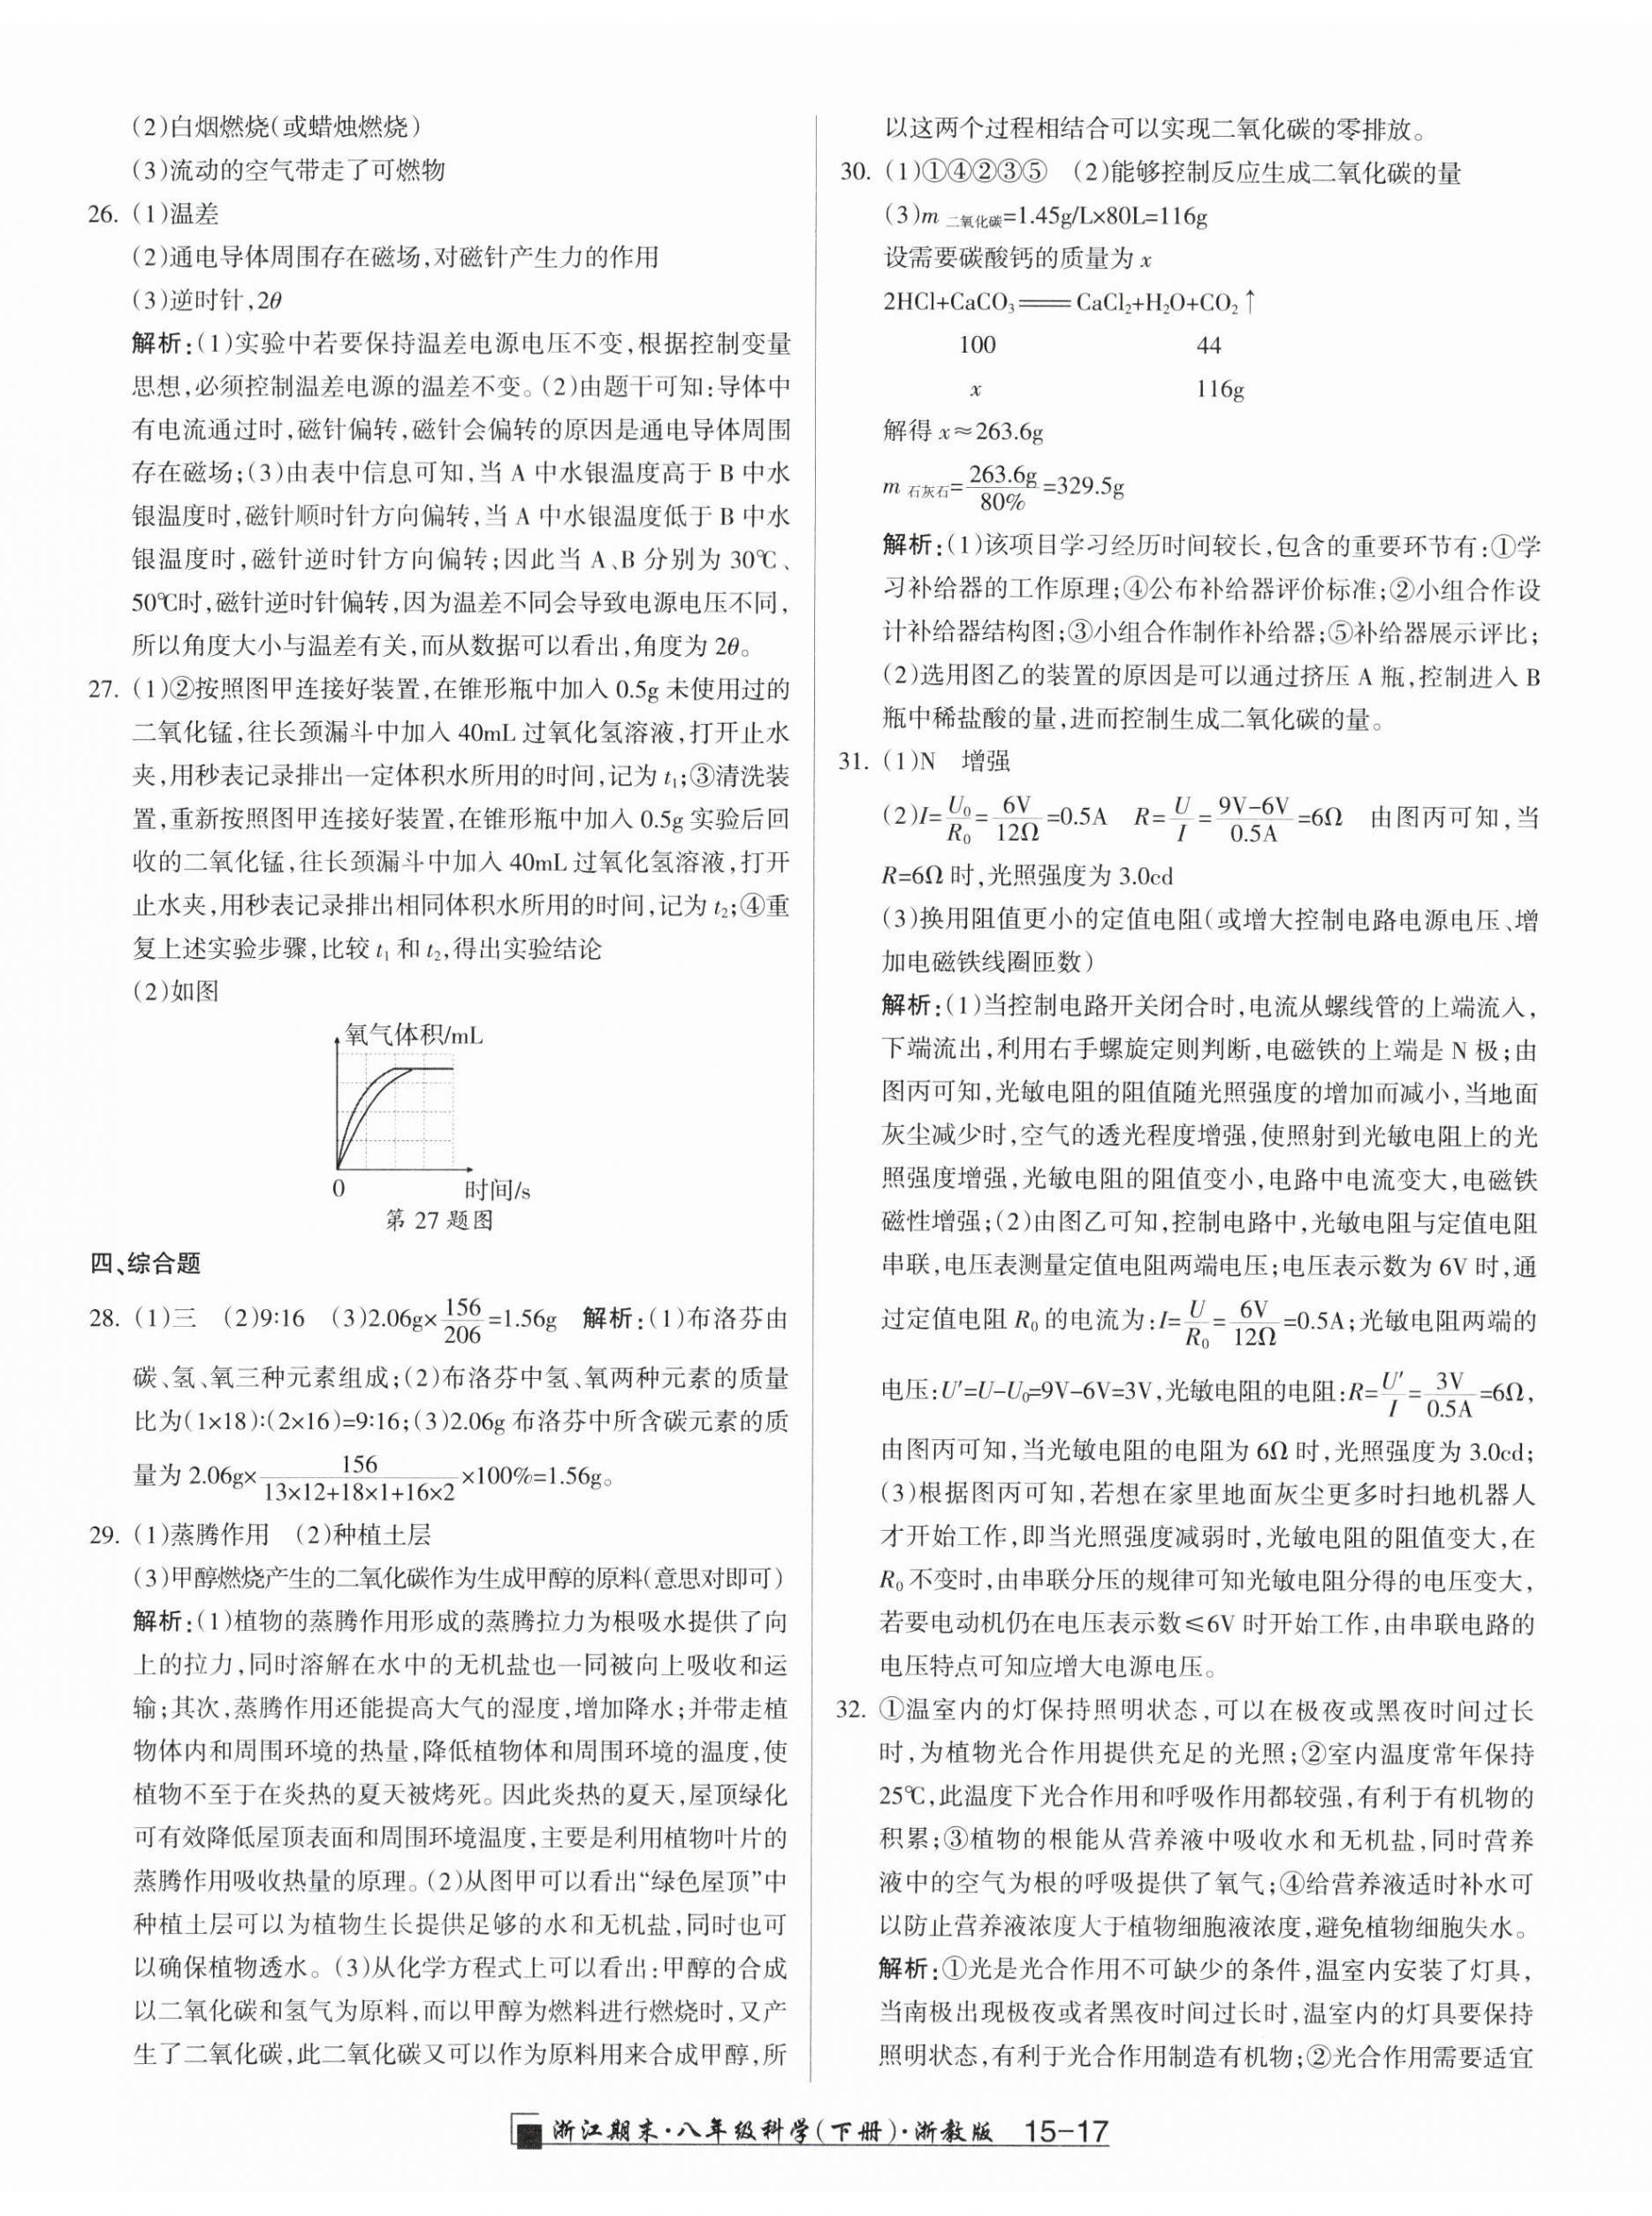 (2)白烟燃烧(或蜡烛燃烧)
(3)流动的空气带走了可燃物
26. (1)温差
(2)通电导体周围存在磁场,对磁针产生力的作用
(3)逆时针,2θ
解析:(1)实验中若要保持温差电源电压不变,根据控制变量
思想,必须控制温差电源的温差不变。(2)由题干可知:导体中
有电流通过时,磁针偏转,磁针会偏转的原因是通电导体周围
存在磁场;(3)由表中信息可知,当 A 中水银温度高于 B 中水
银温度时,磁针顺时针方向偏转,当 A 中水银温度低于 B 中水
银温度时,磁针逆时针方向偏转;因此当 A、B 分别为 30℃、
50℃时,磁针逆时针偏转,因为温差不同会导致电源电压不同,
所以角度大小与温差有关,而从数据可以看出,角度为 2θ。
27. (1)②按照图甲连接好装置,在锥形瓶中加入 0.5g 未使用过的
二氧化锰,往长颈漏斗中加入 40mL 过氧化氢溶液,打开止水
夹,用秒表记录排出一定体积水所用的时间,记为 t₁;③清洗装
置,重新按照图甲连接好装置,在锥形瓶中加入 0.5g 实验后回
收的二氧化锰,往长颈漏斗中加入 40mL 过氧化氢溶液,打开
止水夹,用秒表记录排出相同体积水所用的时间,记为 t₂;④重
复上述实验步骤,比较 t₁ 和 t₂,得出实验结论
(2)如图
氧气体积/mL
0 时间/s
第 27 题图
四、综合题
28. (1)三 (2)9:16 (3)2.06g×156/206=1.56g 解析:(1)布洛芬由
碳、氢、氧三种元素组成;(2)布洛芬中氢、氧两种元素的质量
比为(1×18):(2×16)=9:16;(3)2.06g 布洛芬中所含碳元素的质
量为 2.06g×156/(13×12+18×1+16×2)×100%=1.56g。
29. (1)蒸腾作用 (2)种植土层
(3)甲醇燃烧产生的二氧化碳作为生成甲醇的原料(意思对即可)
解析:(1)植物的蒸腾作用形成的蒸腾拉力为根吸水提供了向
上的拉力,同时溶解在水中的无机盐也一同被向上吸收和运
输;其次,蒸腾作用还能提高大气的湿度,增加降水;并带走植
物体内和周围环境的热量,降低植物体和周围环境的温度,使
植物不至于在炎热的夏天被烤死。因此炎热的夏天,屋顶绿化
可有效降低屋顶表面和周围环境温度,主要是利用植物叶片的
蒸腾作用吸收热量的原理。(2)从图甲可以看出“绿色屋顶”中
种植土层可以为植物生长提供足够的水和无机盐,同时也可
以确保植物透水。(3)从化学方程式上可以看出:甲醇的合成
以二氧化碳和氢气为原料,而以甲醇为燃料进行燃烧时,又产
生了二氧化碳,此二氧化碳又可以作为原料用来合成甲醇,所
以这两个过程相结合可以实现二氧化碳的零排放。
30. (1)①④②③⑤ (2)能够控制反应生成二氧化碳的量
(3)m二氧化碳=1.45g/L×80L=116g
设需要碳酸钙的质量为 x
2HCl+CaCO₃══CaCl₂+H₂O+CO₂↑
100 44
x 116g
解得 x≈263.6g
m石灰石=263.6g/80%=329.5g
解析:(1)该项目学习经历时间较长,包含的重要环节有:①学
习补给器的工作原理;④公布补给器评价标准;②小组合作设
计补给器结构图;③小组合作制作补给器;⑤补给器展示评比;
(2)选用图乙的装置的原因是可以通过挤压 A 瓶,控制进入 B
瓶中稀盐酸的量,进而控制生成二氧化碳的量。
31. (1)N 增强
(2)I=U₀/R₀=6V/12Ω=0.5A R=U/I=(9V-6V)/0.5A=6Ω 由图丙可知,当
R=6Ω 时,光照强度为 3.0cd
(3)换用阻值更小的定值电阻(或增大控制电路电源电压、增
加电磁铁线圈匝数)
解析:(1)当控制电路开关闭合时,电流从螺线管的上端流入,
下端流出,利用右手螺旋定则判断,电磁铁的上端是 N 极;由
图丙可知,光敏电阻的阻值随光照强度的增加而减小,当地面
灰尘减少时,空气的透光程度增强,使照射到光敏电阻上的光
照强度增强,光敏电阻的阻值变小,电路中电流变大,电磁铁
磁性增强;(2)由图乙可知,控制电路中,光敏电阻与定值电阻
串联,电压表测量定值电阻两端电压;电压表示数为 6V 时,通
过定值电阻 R₀ 的电流为:I=U/R₀=6V/12Ω=0.5A;光敏电阻两端的
电压:U′=U-U₀=9V-6V=3V,光敏电阻的电阻:R=U′/I=3V/0.5A=6Ω,
由图丙可知,当光敏电阻的电阻为 6Ω 时,光照强度为 3.0cd;
(3)根据图丙可知,若想在家里地面灰尘更多时扫地机器人
才开始工作,即当光照强度减弱时,光敏电阻的阻值变大,在
R₀ 不变时,由串联分压的规律可知光敏电阻分得的电压变大,
若要电动机仍在电压表示数≤6V 时开始工作,由串联电路的
电压特点可知应增大电源电压。
32. ①温室内的灯保持照明状态,可以在极夜或黑夜时间过长
时,为植物光合作用提供充足的光照;②室内温度常年保持
25℃,此温度下光合作用和呼吸作用都较强,有利于有机物的
积累;③植物的根能从营养液中吸收水和无机盐,同时营养
液中的空气为根的呼吸提供了氧气;④给营养液适时补水可
以防止营养液浓度大于植物细胞液浓度,避免植物细胞失水。
解析:①光是光合作用不可缺少的条件,温室内安装了灯具,
当南极出现极夜或者黑夜时间过长时,温室内的灯具要保持
照明状态,有利于光合作用制造有机物;②光合作用需要适宜
浙江期末·八年级科学(下册)·浙教版 15-17